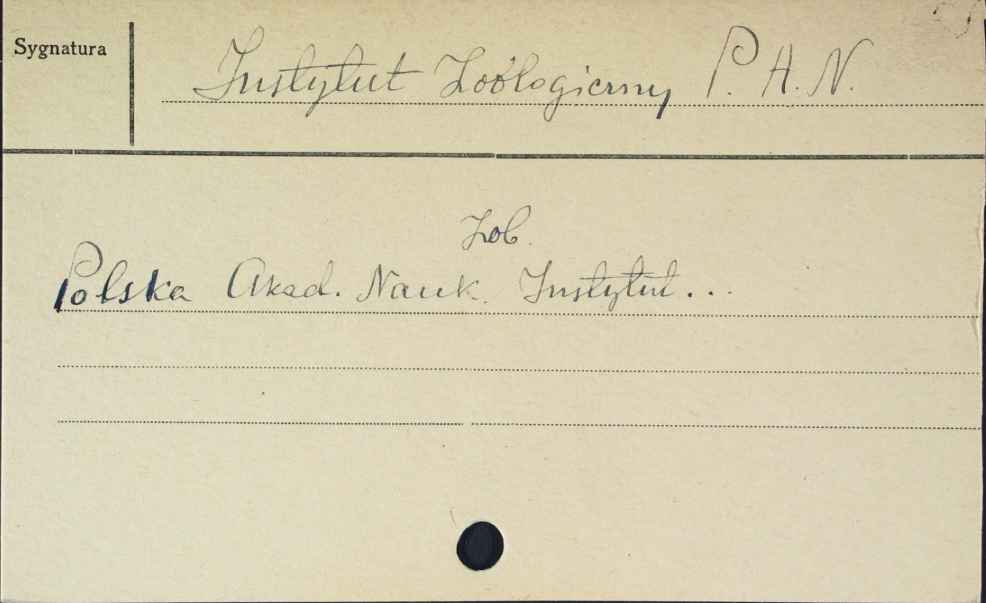 Sygnatura
Instytut Zoologiczny P. A. N.
Zob.
Polska Akad. Nauk. Instytut...